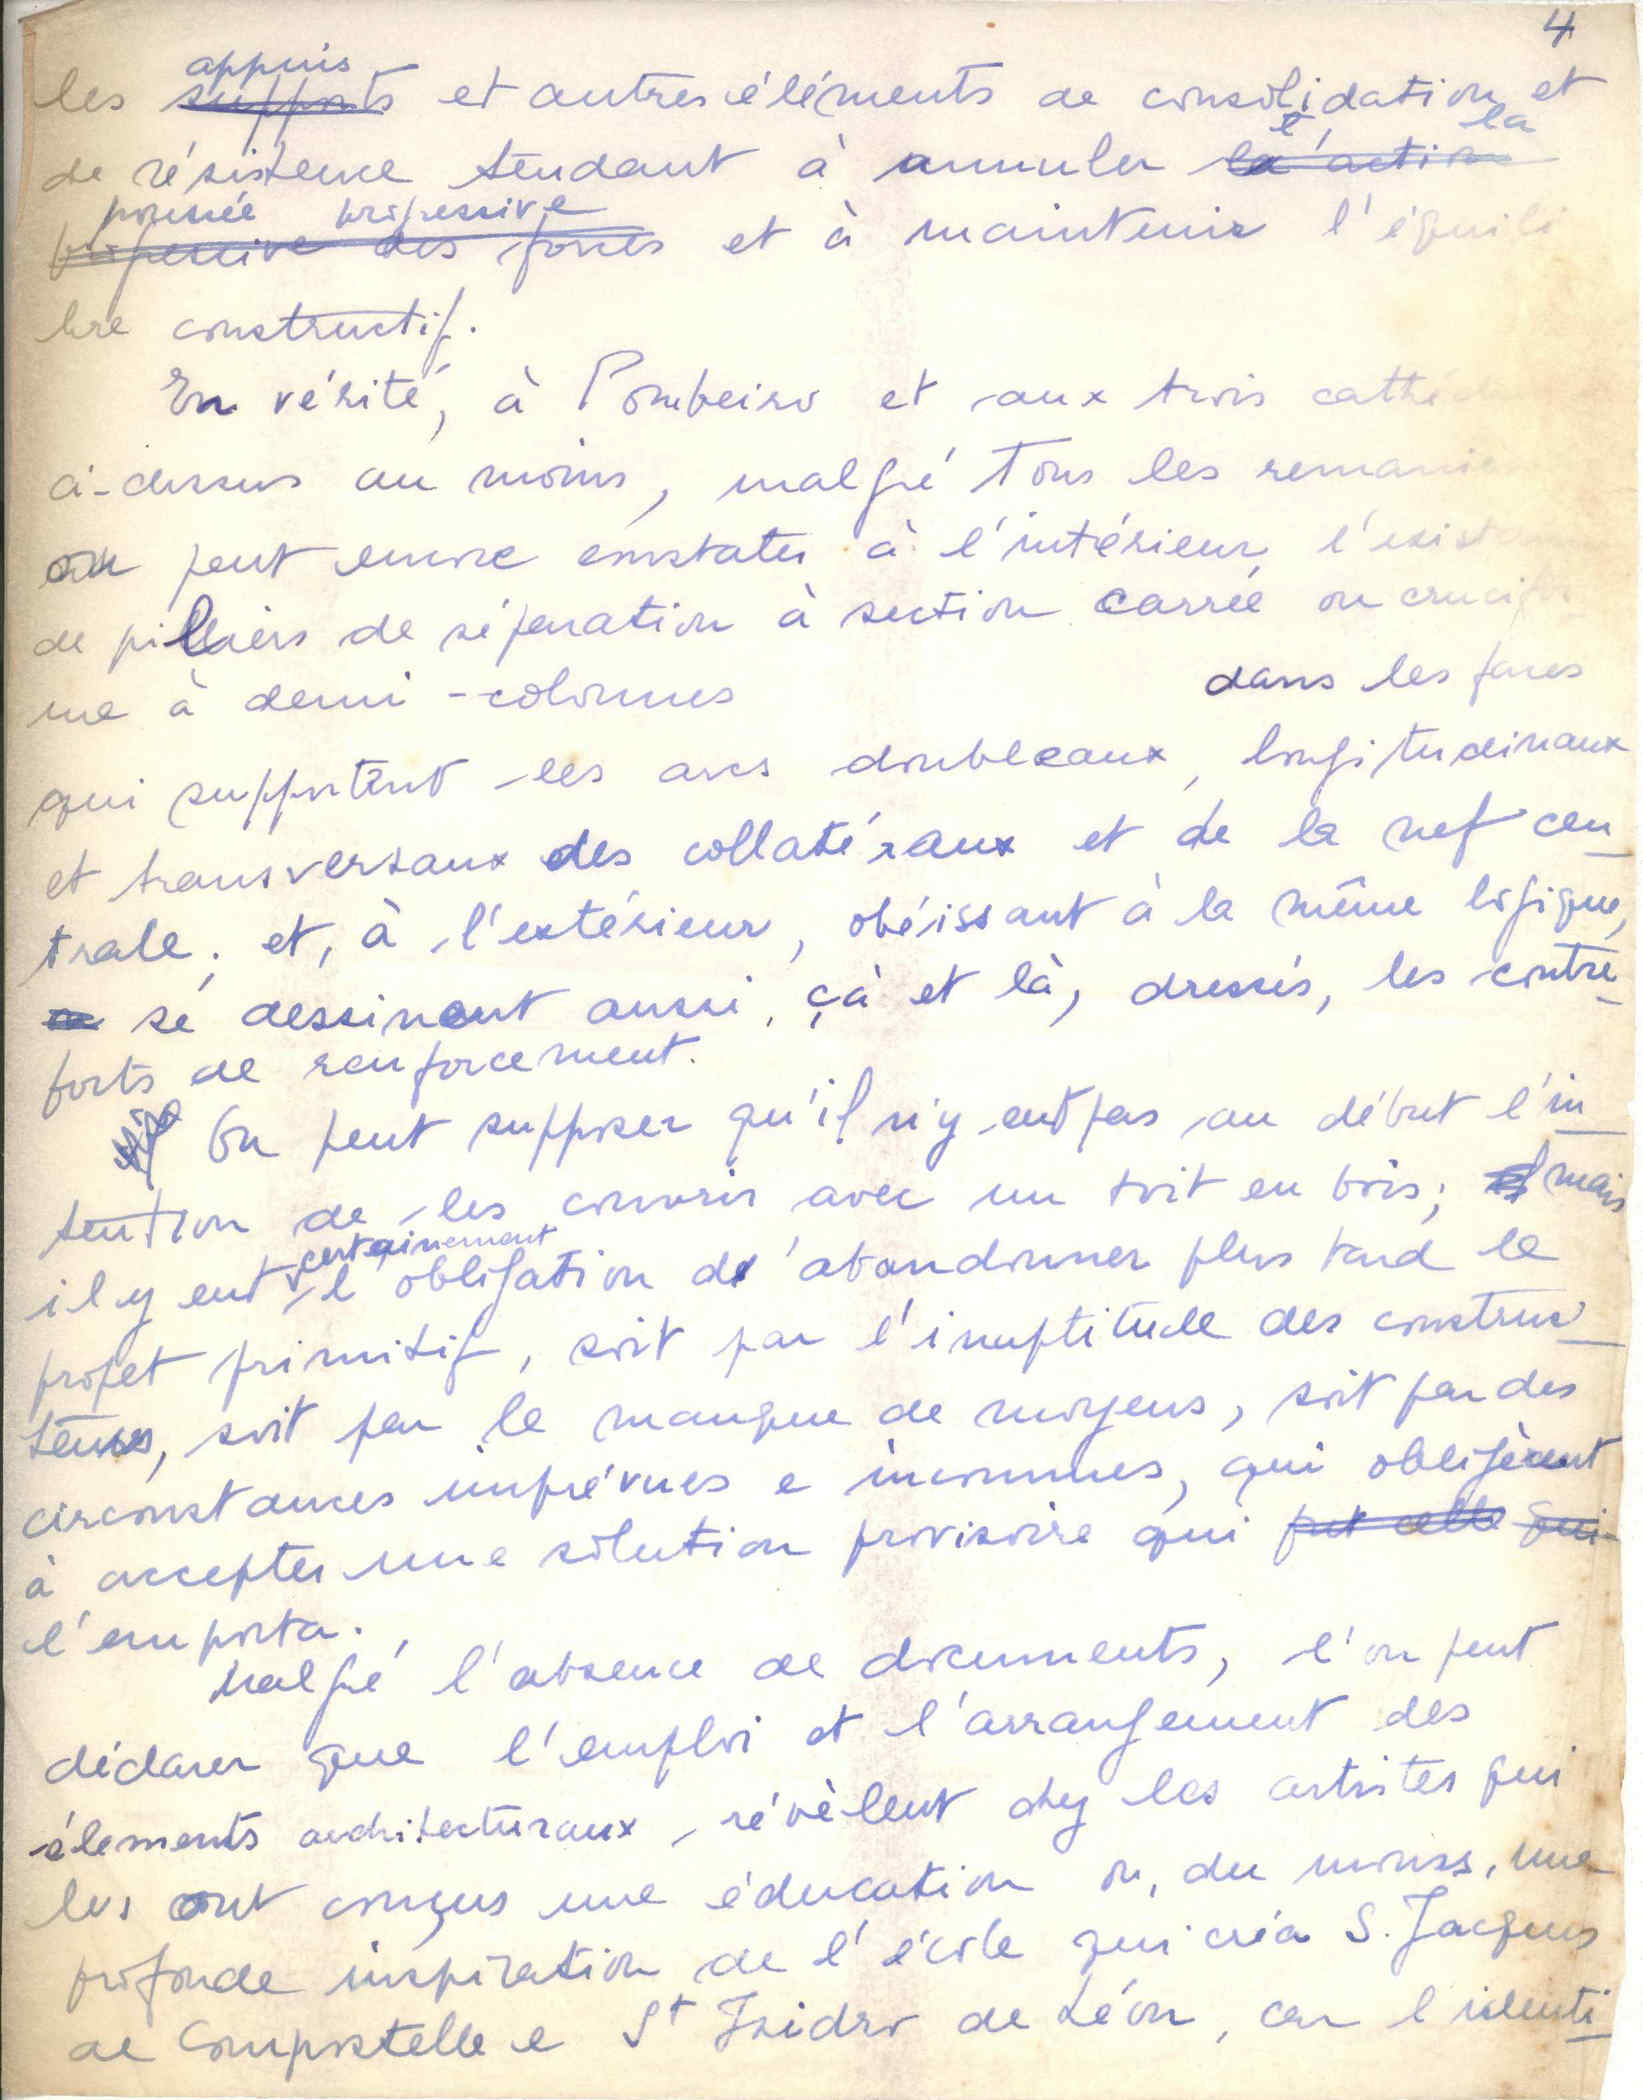 4
appuis
les supports et autres éléments de consolidation et
l' la
de résistence tendant à annuler la action
poussée progressive
progressive des forces et à maintenir l'équili
bre constructif.
En vérité, à Pombeiro et aux trois cathéd
ci-dessus au moins, malgré tous les remanie
on peut encore constater à l'intérieur, l'existan
de pilliers de séparation à section carrée ou crucifor
me à demi-colonnes dans les faces
qui supportent les arcs doubleaux, longitudinaux
et transversaux des collatéraux et de la nef cen_
trale; et, à l'extérieur, obéissant à la même logique,
se dessinent aussi, çà et là, dressés, les contre_
forts de renforcement.
On peut supposer qu'il n'y eut pas au début l'in_
tention de les couvrir avec un toit en bois; mais
certainement
il y eut l'obligation d'abandonner plus tard le
projet primitif, soit par l'inaptitude des construc_
teurs, soit par le manque de moyens, soit par des
circonstances imprévues e inconnues, qui obligèrent
à accepter une solution provisoire qui fut celle qui
l'emporta.
Malgré l'absence de documents, l'on peut
déclarer que l'emploi et l'arrangement des
élements architecturaux, révèlent chez les artistes qui
les ont conçus une éducation ou, du moins, une
profonde inspiration de l'école qui créa S. Jacques
de Compostelle e St Isidro de Léon, car l'identi_